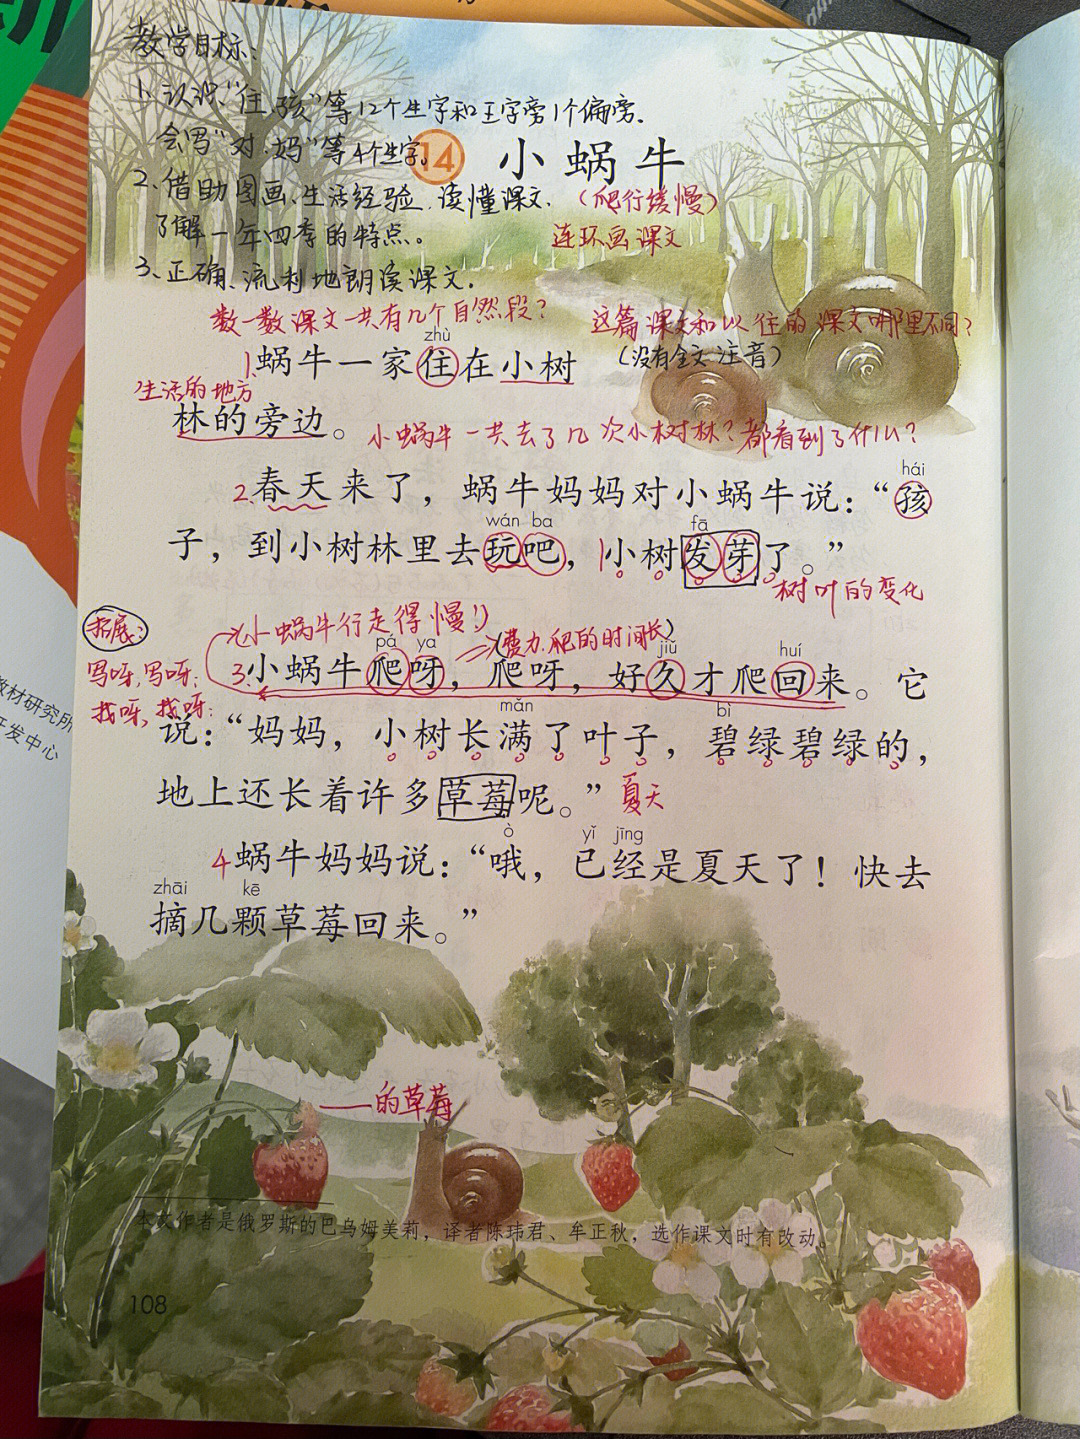 教学目标：
1、认识“住、孩”等12个生字和王字旁1个偏旁．
会写“对、妈”等4个生字。
14 小蜗牛
2、借助图画、生活经验，读懂课文．（爬行缓慢）
了解一年四季的特点。 连环画课文
3、正确、流利地朗读课文．
数一数课文一共有几个自然段？ 这篇课文和以往的课文哪里不同？
zhù
1.蜗牛一家住在小树 （没有全文注音）
生活的地方
林的旁边。 小蜗牛一共去了几次小树林？都看到了什么？
hái
2.春天来了，蜗牛妈妈对小蜗牛说：“孩
wán ba fā
子，到小树林里去玩吧，小树发芽了。”
树叶的变化
拓展：
小蜗牛行走得慢！ （费力，爬的时间长）
pá ya jiǔ huí
写呀，写呀； 3.小蜗牛爬呀，爬呀，好久才爬回来。它
找呀，找呀；
教材研究所
开发中心
mǎn bì
说：“妈妈，小树长满了叶子，碧绿碧绿的，
地上还长着许多草莓呢。” 夏天
ò yǐ jīng
4 蜗牛妈妈说：“哦，已经是夏天了！快去
zhāi kē
摘几颗草莓回来。”
——的草莓
本文作者是俄罗斯的巴乌姆美莉，译者陈玮君、牟正秋，选作课文时有改动。
108